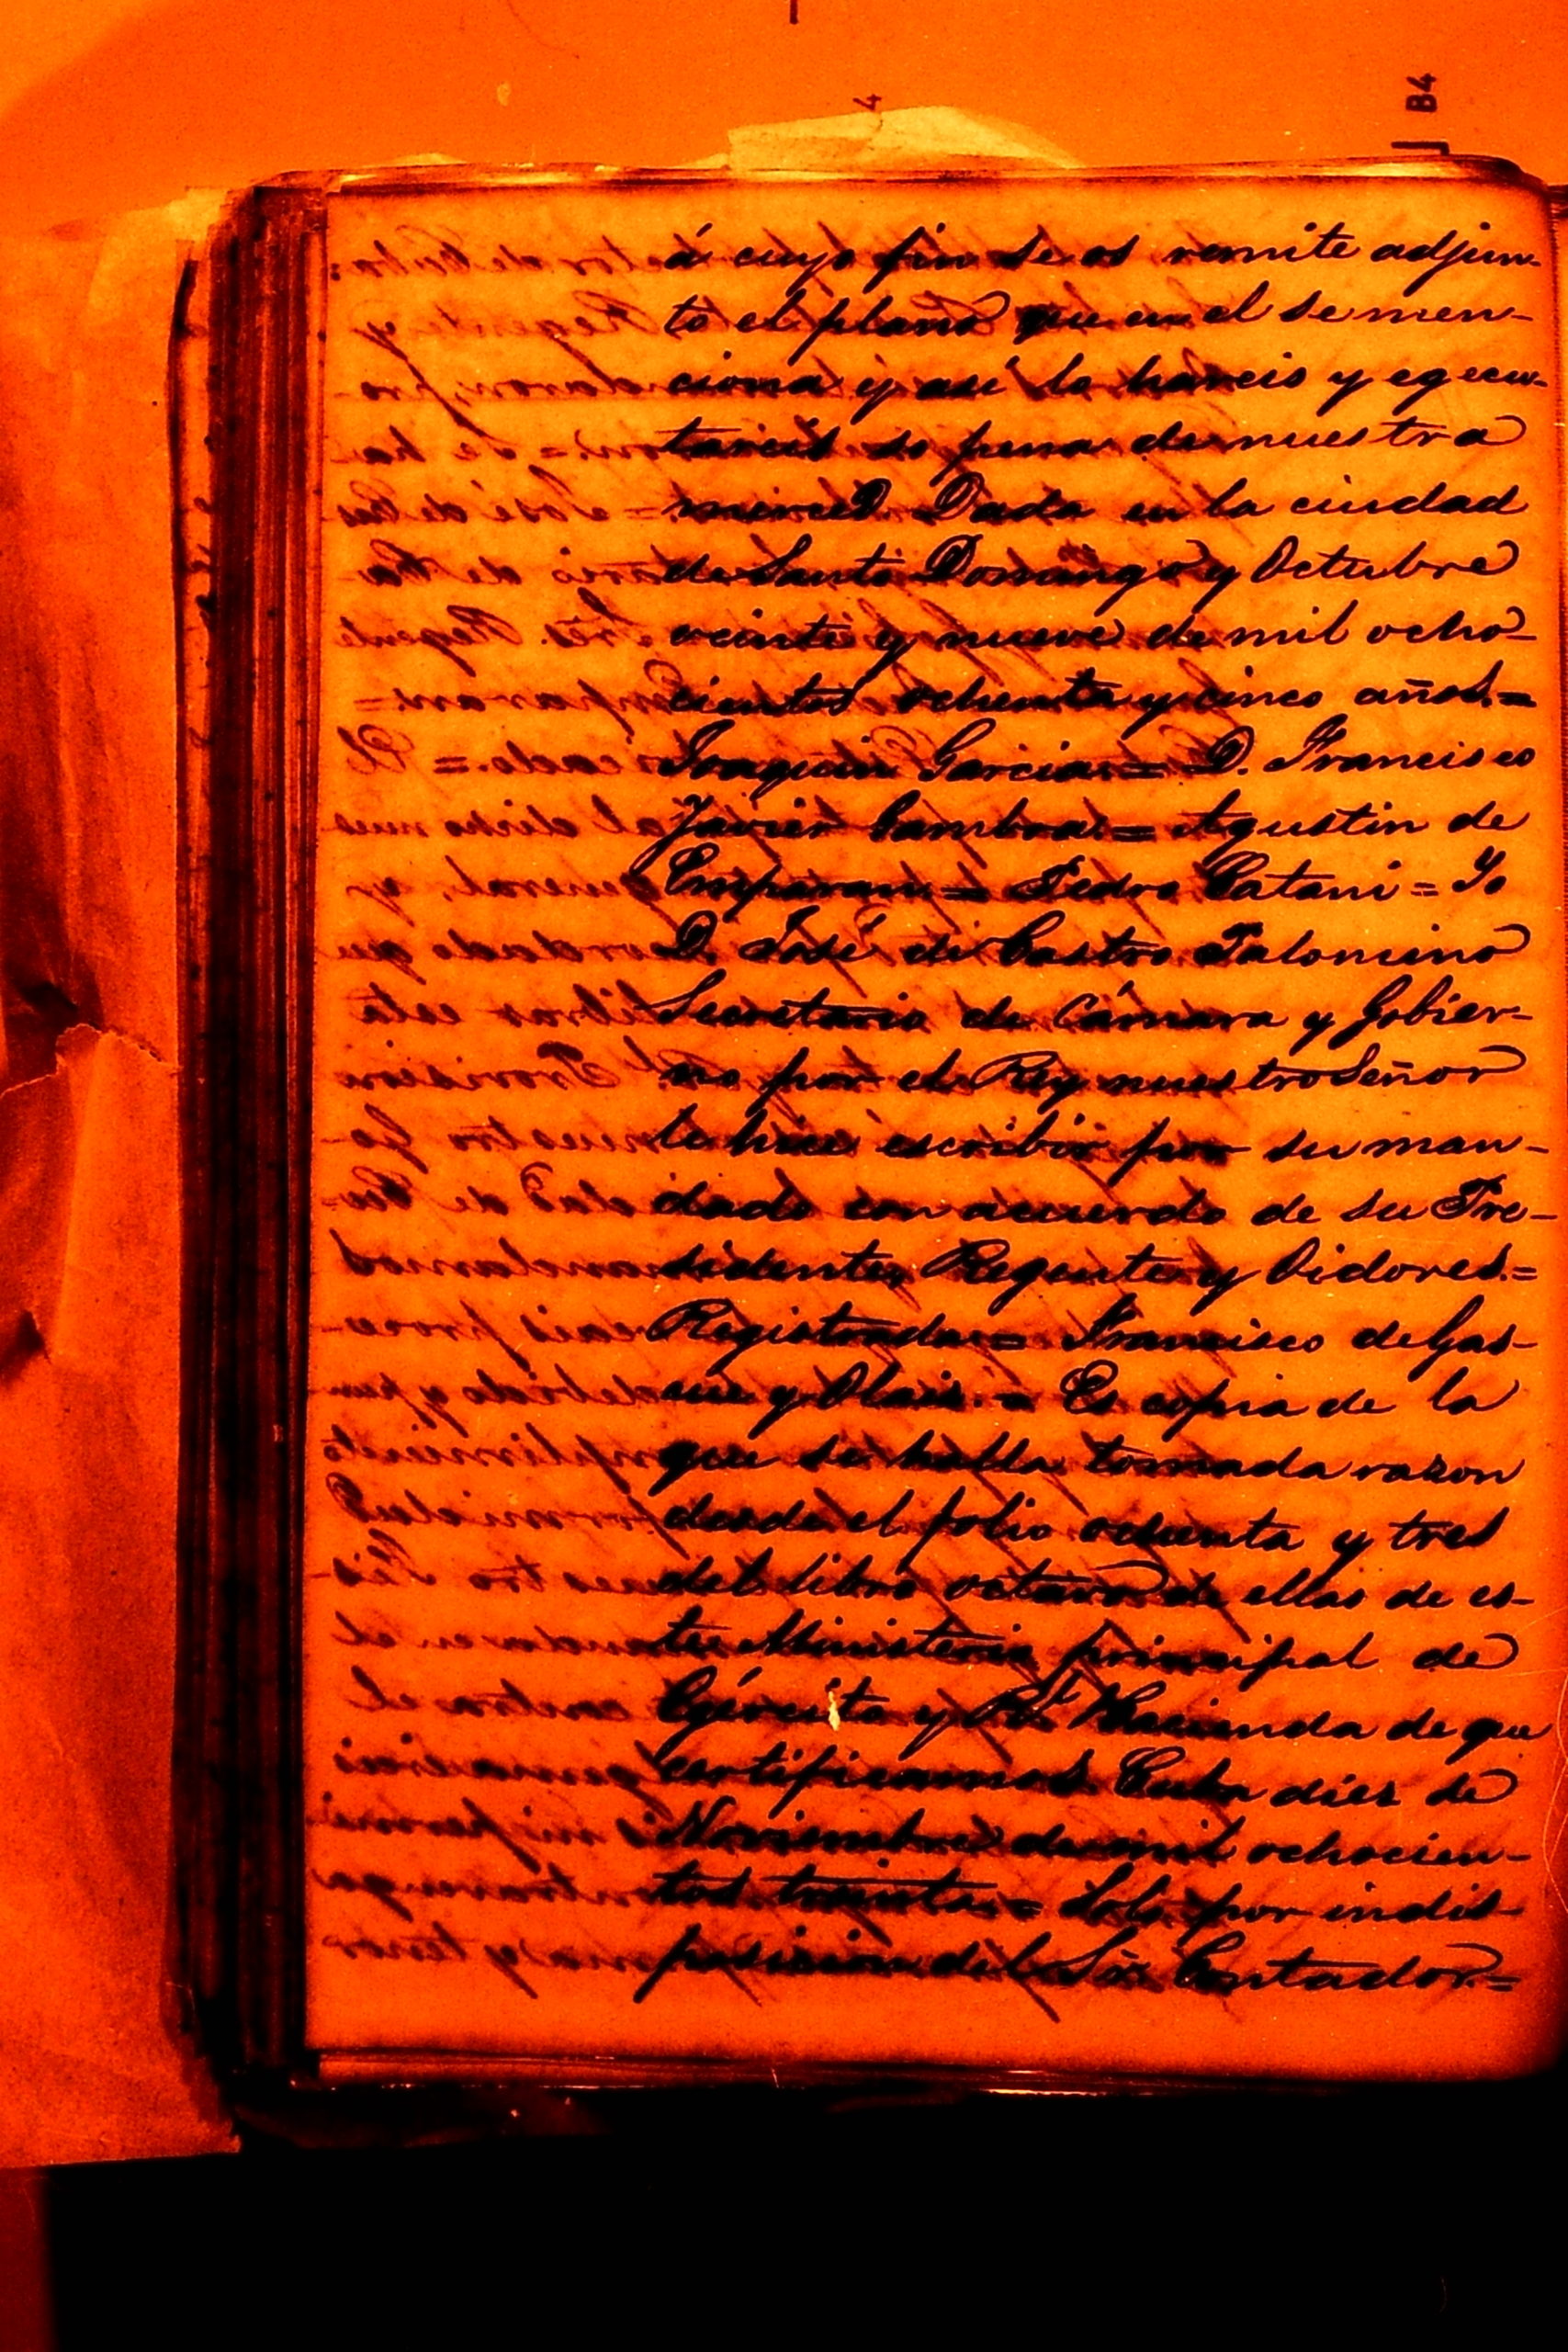 4
B4
á cuyo fin se os remite adjun-
to el plano que en el se men-
ciona y asi lo hareis y egecu-
tareis so pena de nuestra
merced Dada en la ciudad
de Santo Domingo y Octubre
veinte y nueve de mil ocho-
cientos ochenta y cinco años.=
Joaquin Garcia = D. Francisco
Javier Gamboa = Agustin de
Emparan = Pedro Catani = Yo
D. José de Castro Palomino
Secretario de Cámara y Gobier-
no por el Rey nuestro Señor
le hice escribir por su man-
dado con acuerdo de su Pre-
sidente, Regente y Oidores.=
Registrada = Francisco de Gas-
cue y Olais. = Es copia de la
que se halla tomada razon
desde el folio ochenta y tres
del libro octavo de ellas de es-
te Ministerio principal de
Ejército y Rl. Hacienda de que
certificamos Cuba diez de
Noviembre de mil ochocien-
tos treinta. = Solo por indis-
posicion del Sor. Contador=